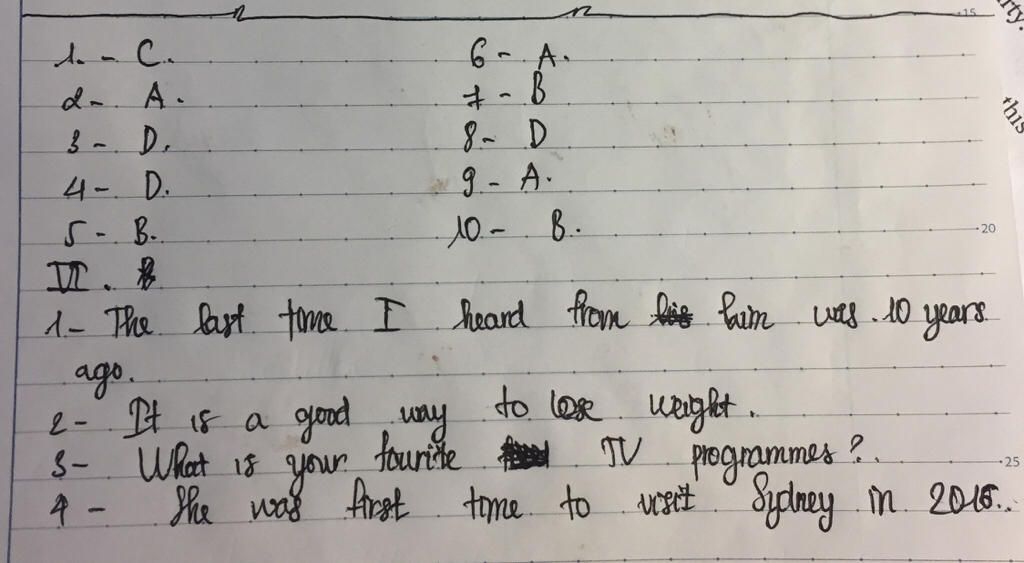 15
rty.
1. - C.
6 - A.
2 - A.
7 - B
this
3 - D.
8 - D
4 - D.
9 - A.
5 - B.
10 - B.
20
VI.
1 - The last time I heard from him was 10 years
ago.
2 - It is a good way to lose weight.
3 - What is your fourite TV programmes?
25
4 - She was first time to visit Sydney in 2016.